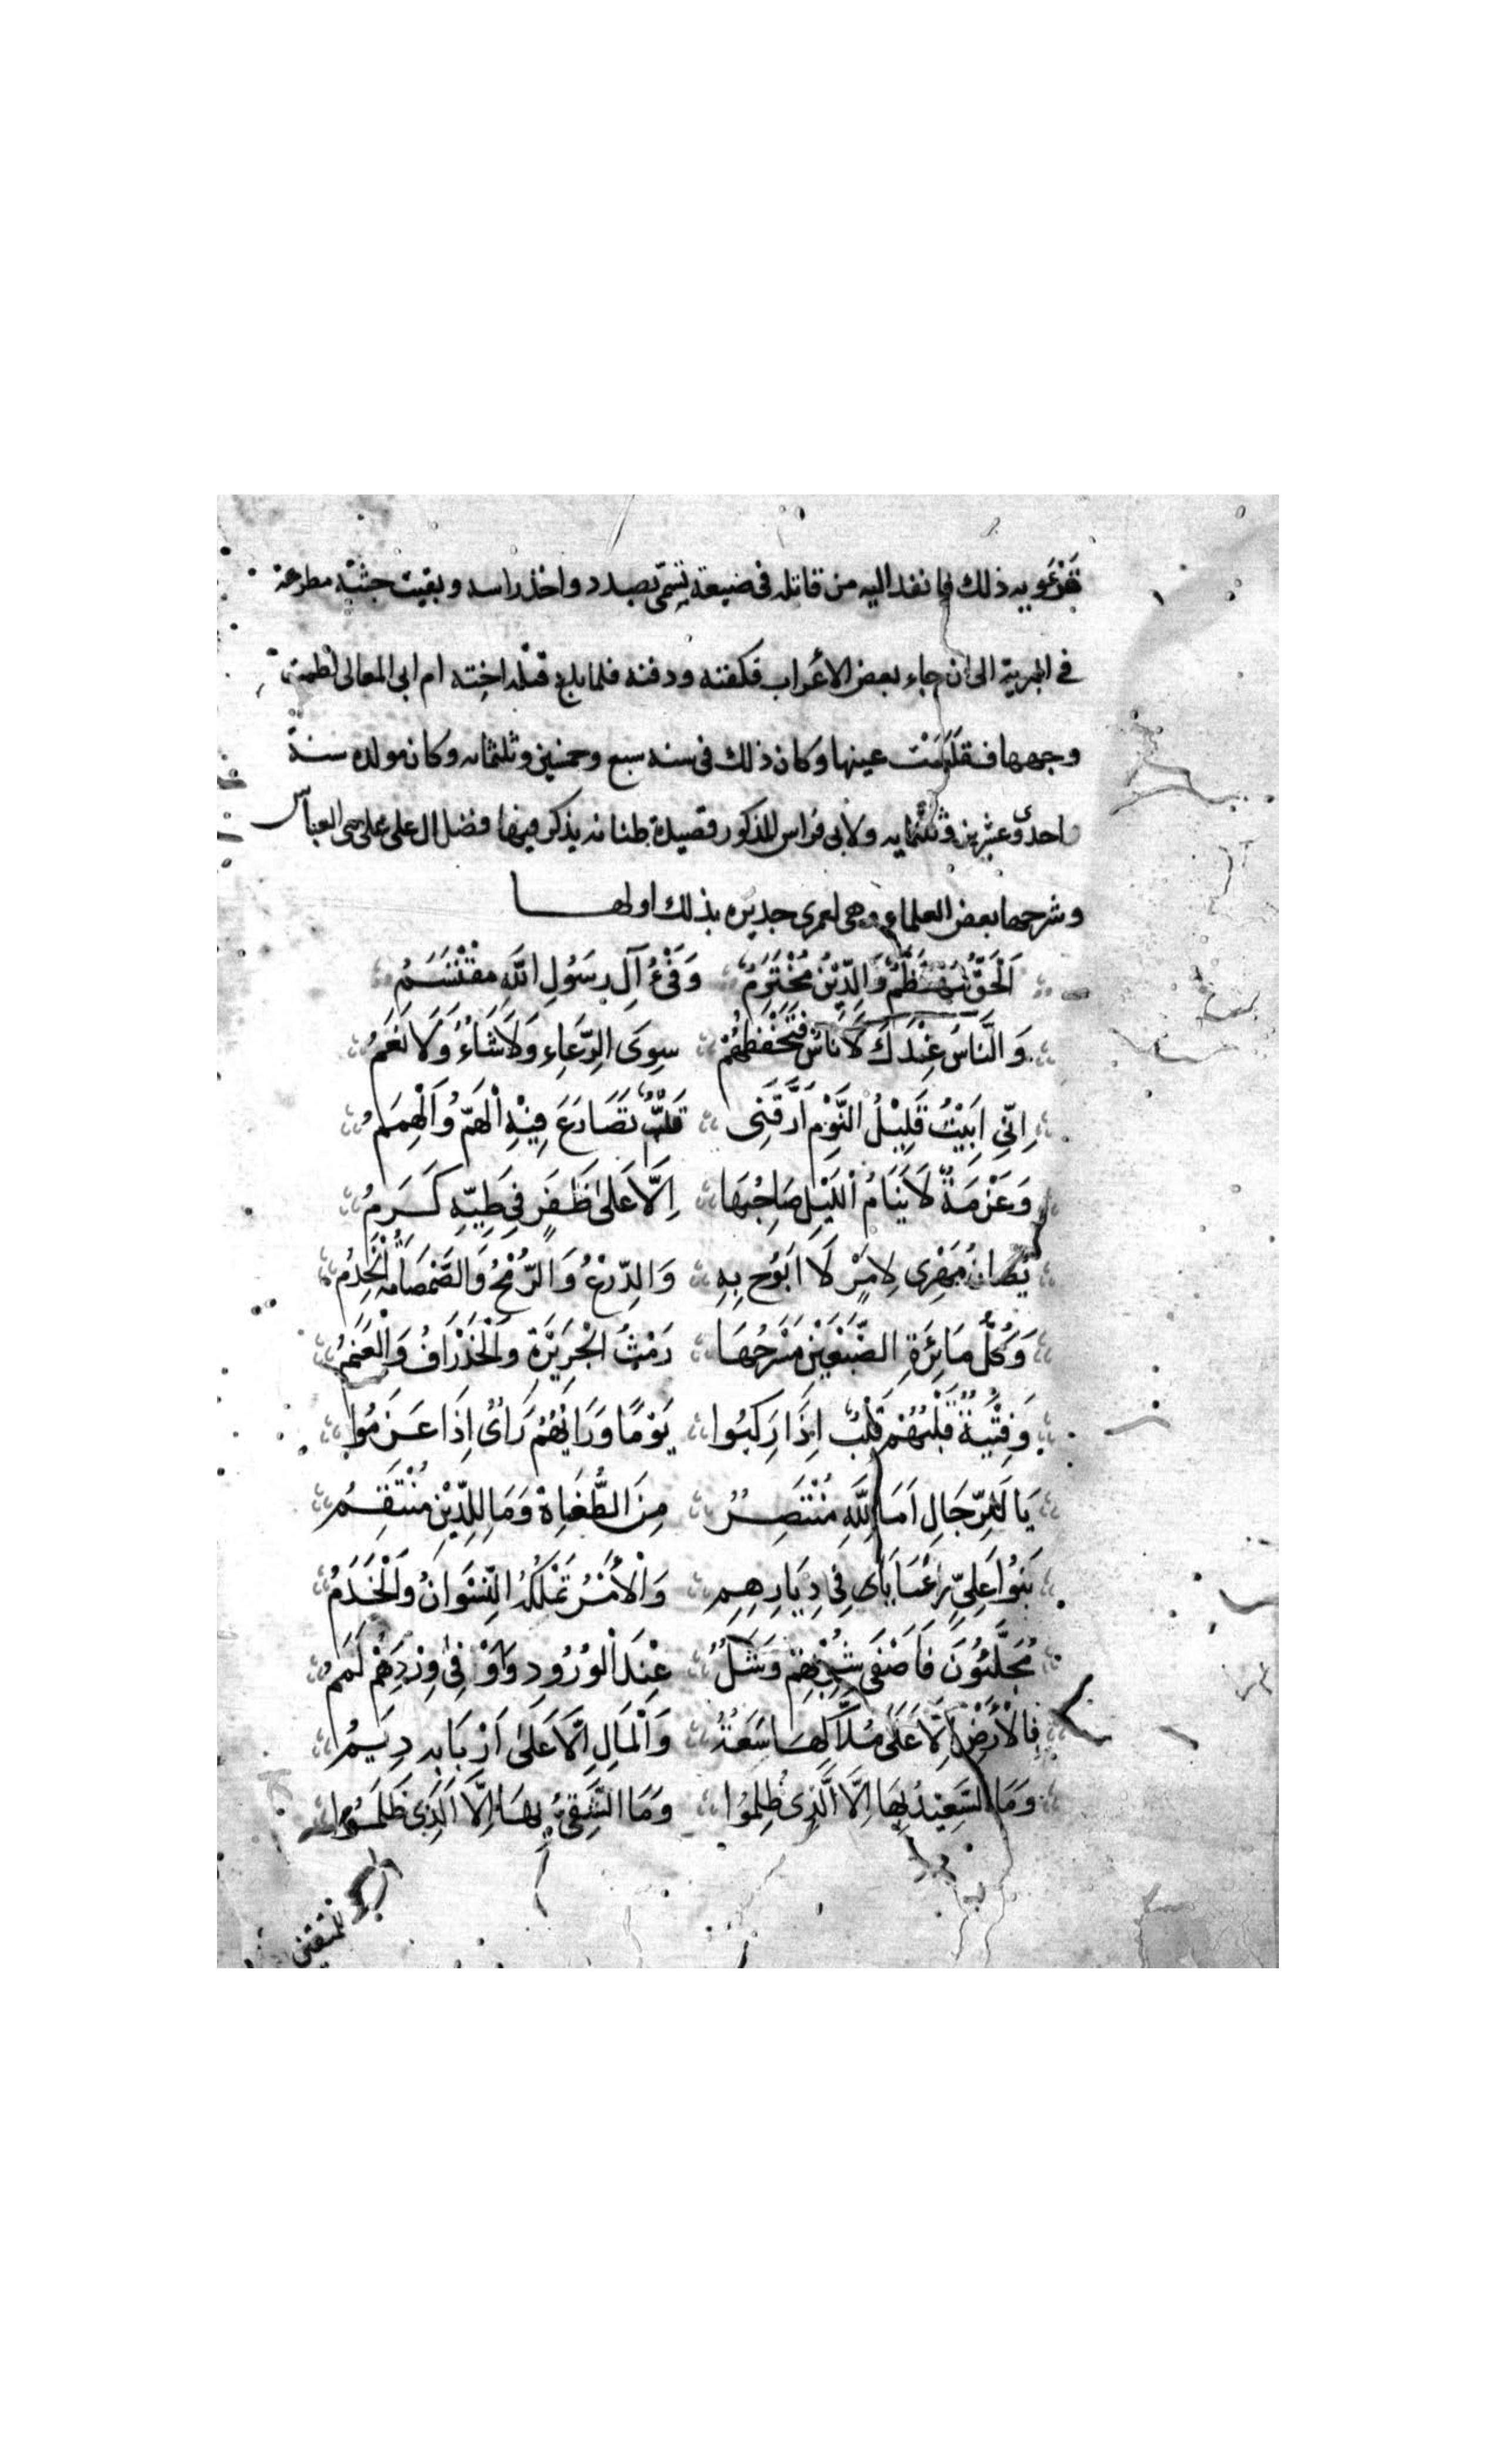 قرغويه ذلك فانفذ اليه من قاتله فى ضيعة تسمى بصدد واخذ راسه وبقيت جثته مطرحة
فى البرية الى ان جاء بعض الأعراب فكفنه ودفنه فلما بلغ قتله اخته ام ابى المعالى لطمت
وجهها فقلعت عينها وكان ذلك فى سنه سبع وخمسين وثلثمائه وكان مولده سنة
احدى وعشرين وثلثمايه ولابى فراس المذكور قصيدة طنانه يذكر فيها فضل ال على على بنى العباس
وشرحها بعض العلماء وهى لعمرى جديره بذلك اولهـــا
اَلْحَقُّ مُهْتَضَمٌ وَالدِّيْنُ مُخْتَرَمُ وَفَىْءُ آلِ رَسُولِ اللَّهِ مقْتَسَمُ
وَالنَّاسُ عِنْدَكَ لَا نَاسٌ فَتَحْفَظُهُمْ سِوَى الرِّعَاءِ وَلَا شَاءٌ وَلَا نَعَمُ
اِنّى اَبِيْتُ قَلِيْلُ النَّوْمِ اَرَّقَنِى قَلْبٌ تَصَارَعَ فِيْهِ اْلهَمّ وُاَلْهِمَمُ
وَعَزْمَةٌ لَا يَنَامُ اْللَّيْلَ صَاحِبُهَا اِلَّا عَلَى ظَفَرٍ فِى طَيِّهِ كَرَمُ
يُصَانُ مُهْرِى لِامْرٍ لَا اَبُوْح بِهِ وَالدِّرْعُ وَالرُّمْحُ وَالصَّمْصَامَةُ اْلخَدِمُ
وَكُلُّ مَائِرَةِ الضَّبْعَيْنِ مَسْرَحُهَا رَمْثُ الْجَزِيْرَةِ وَالْخَذْرَافُ وَالْعَنَمُ
وَفِتْيَةٌ قَلْبُهُمْ قَلْبٌ اِذَا رَكِبُوا يَوْمًا وَرَايُهُمُ رَاىٌ اِذَا عَزَمُوا
يَا لَلرِّجَالِ اَمَا لِلَّهِ مُنْتَصِرُ مِنَ الطُّغَاةِ وَمَا لِلدِّيْنِ مُنْتَقِمُ
بَنُوْا عَلِىٍّ رَعَايَاى فِى دِيَارِهِمِ وَالْأَمْرُ تَمْلِكُهُ النِّسْوَانُ وَالْخَدَمُ
مُحَلَّئُوْنَ فَاَصْفَى شِرْبِهِمْ وَشَلٌ عِنْدَ الْوُرُودِ وَاَوْفَىٰ وِرْدِهِمْ لَمَمُ
فِالْاَرْضِ اِلَّا عَلَى مُلَّاكِهَا سَعَةٌ وَالْمَالِ اِلَّا عَلَى اَرْبَابِهِ دِيَمُ
وَمَا السَّعِيْدُ بِهَا اِلَّا الَّذِى ظُلِمُوْا وَمَا الشَّقِىُّ بِهَا اِلَّا الَّذِى ظَلَمُوْا
للمتقين